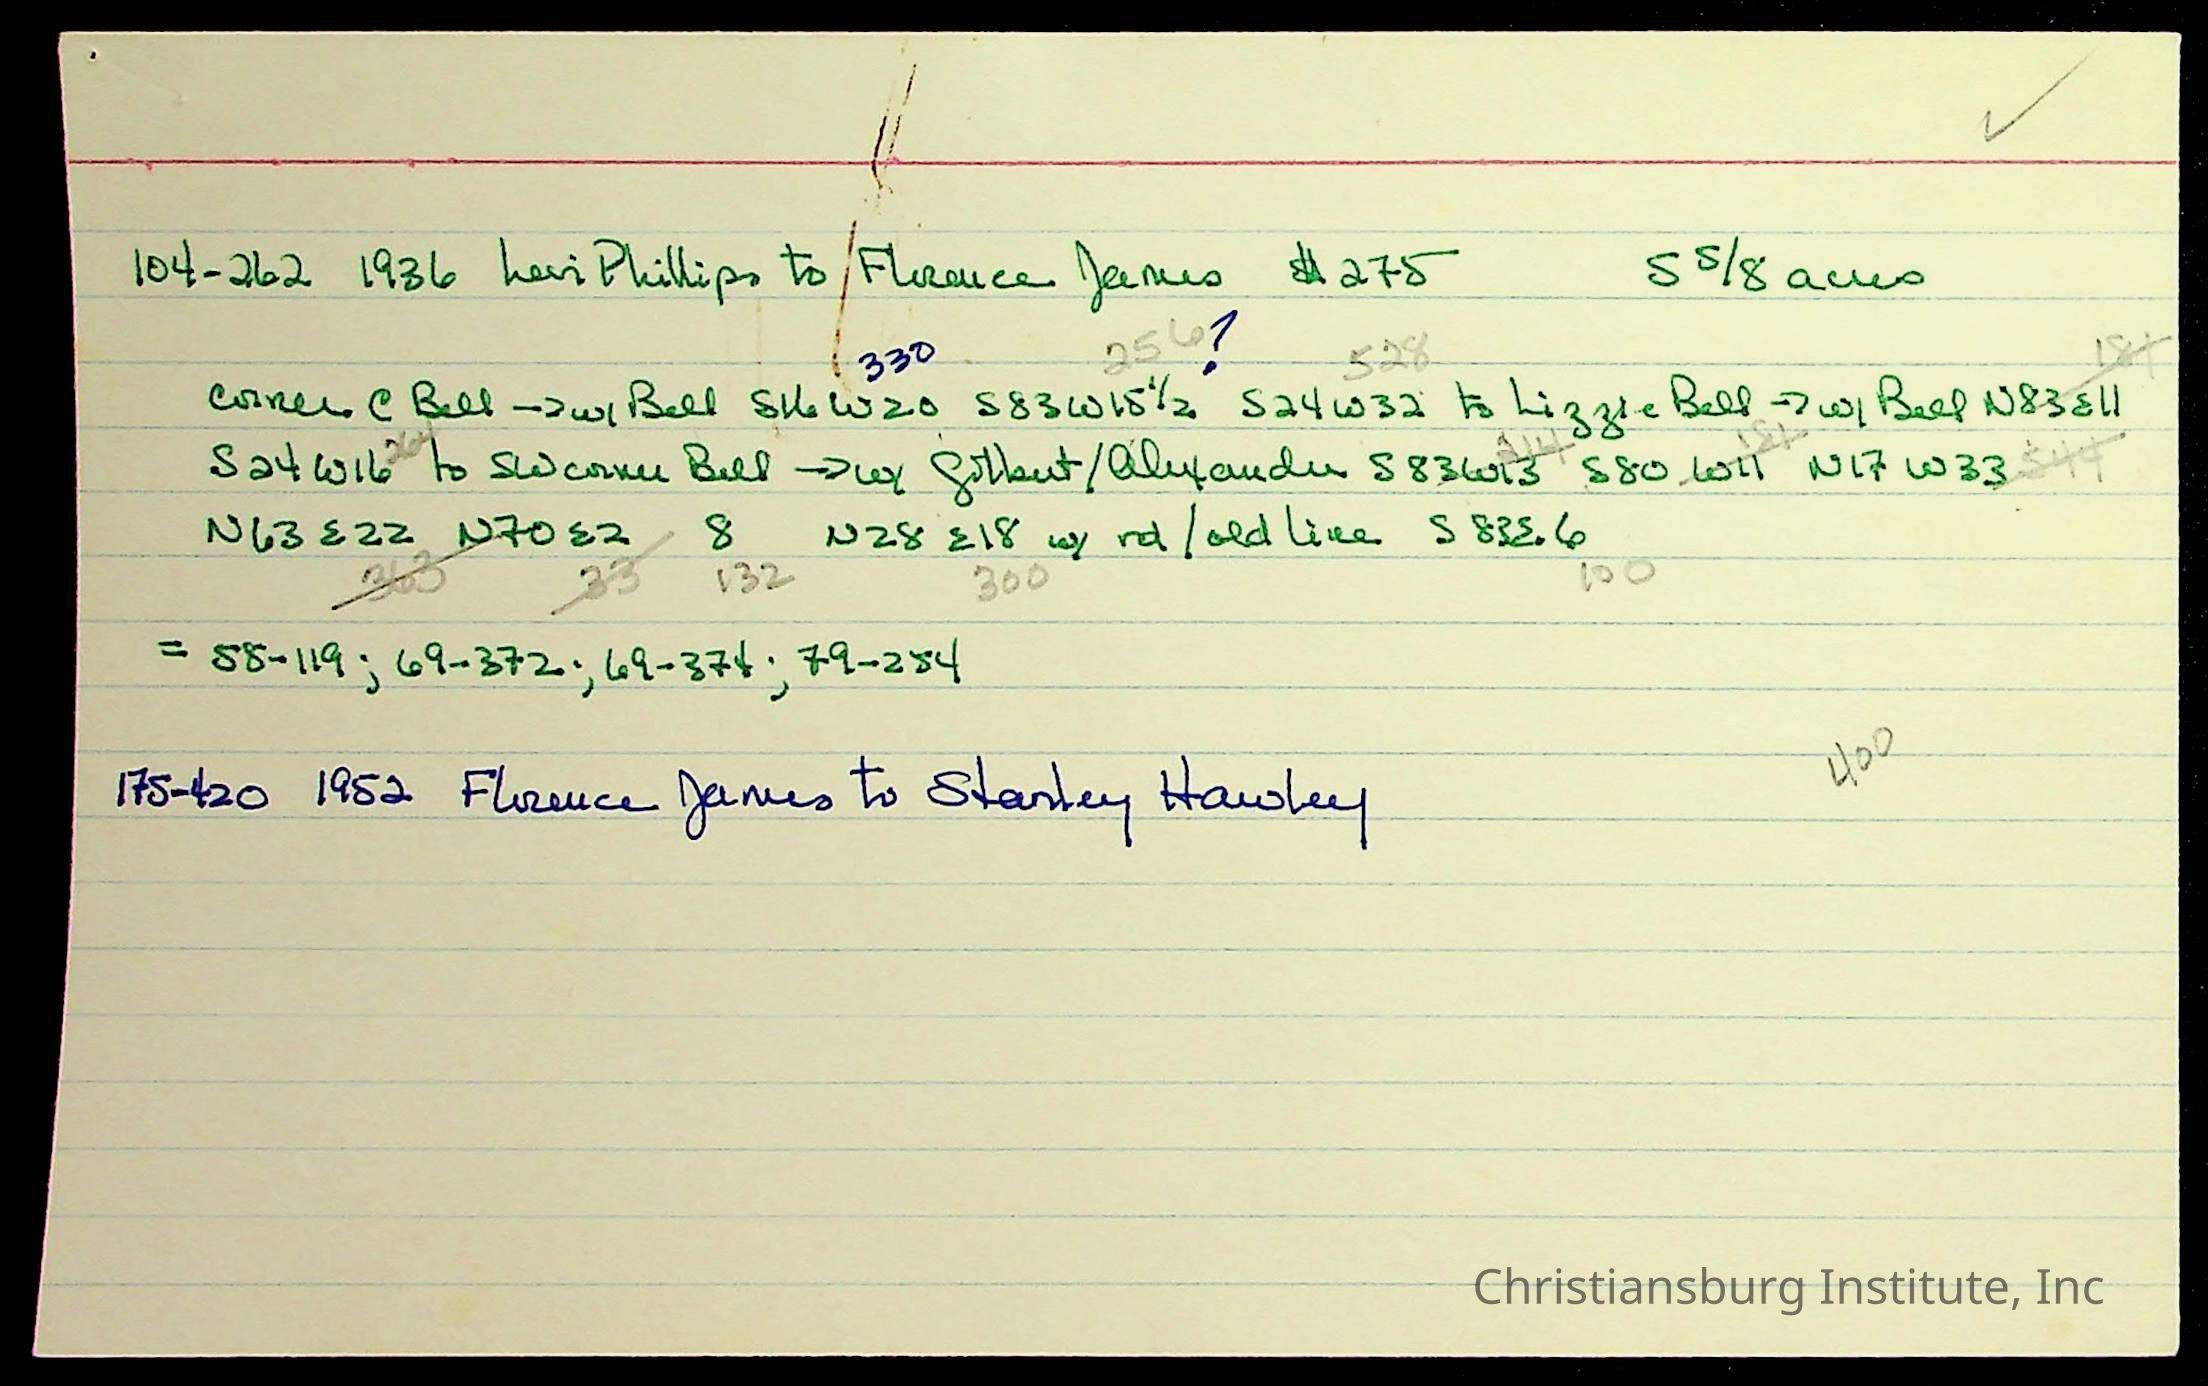 ✓
104-262 1936 Levi Phillips to Florence James $275 5 5/8 acres
330 256? 528 181
corner C Bell → w/ Bell S16W20 S83W15½ S24W32 to Lizzie Bell → w/ Bell N83E11
264 214 181 544
S24W16 to SW corner Bell → w/ Gilbert/Alexander S83W13 S80W11 N17W33
N63E22 N70E2 8 N28E18 w/ rd/old line S83E.6
363 33 132 300 100
= 55-119; 69-372; 69-374; 79-254
400
175-420 1952 Florence James to Stanley Hawley
Christiansburg Institute, Inc